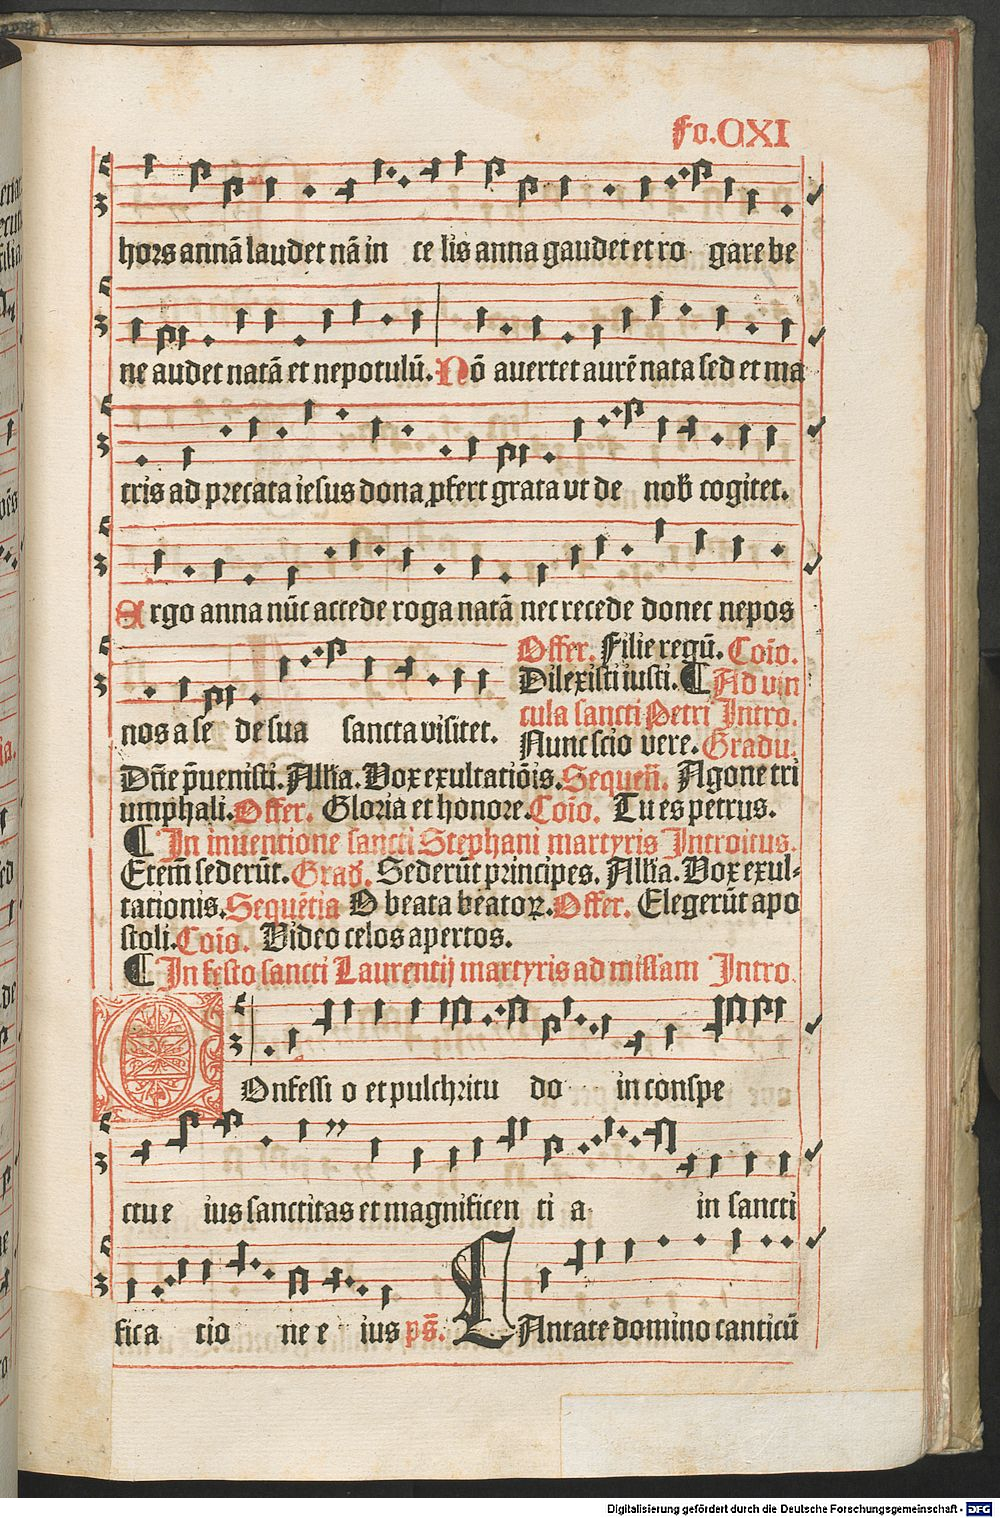 fo.CXI
hors annā laudet nā in ce lis anna gaudet et ro gare be
ne audet natā et nepotulū. Nō avertet aurē nata sed et ma
tris ad precata iesus dona ꝓfert grata ut de nob cogitet.
Argo anna nūc accede roga natā nec recede donec nepos
nos a se de sua sancta visitet.
Offer. Filie regū. Coīo.
Dilexisti iusti. ¶ Ad vin
cula sancti Petri Intro.
Nunc scio vere. Gradu.
Dn̄e p̄uenisti. Alл̄ia. Vox exultatiōis. Sequen̄. Agone tri
umphali. Offer. Gloria et honore. Coīo. Tu es petrus.
¶ In inuentione sancti Stephani martyris Introitus.
Etem̄ sederūt. Grad. Sederūt principes. Allīa. Vox exul-
tationis. Sequētia O beata beatoꝝ. Offer. Elegerūt apo
stoli. Coīo. Video celos apertos.
¶ In festo sancti Laurentij martyris ad missam Intro.
COnfessi o et pulchritu do in conspe
ctu e ius sanctitas et magnificen ti a in sancti
fica tio ne e ius ps̄. CAntate domino canticū
Digitalisierung gefördert durch die Deutsche Forschungsgemeinschaft - DFG